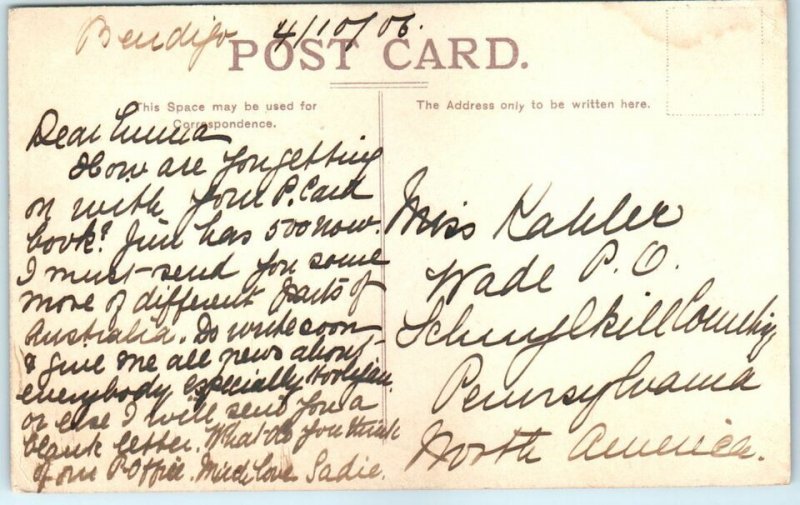 Bendigo 4/10/06.
POST CARD.
This Space may be used for
Correspondence.
The Address only to be written here.
Dear Emma
How are you getting
on with your P. Card
book? Jim has 500 now.
I must send you some
more of different parts of
Australia. Do write soon
& give me all news about
everybody especially Hooligan.
or else I will send you a
blank letter. What do you think
of our P. Office. Much Love Sadie.
Miss Kahler
Wade P. O.
Schuylkill County
Pennsylvania
North America.